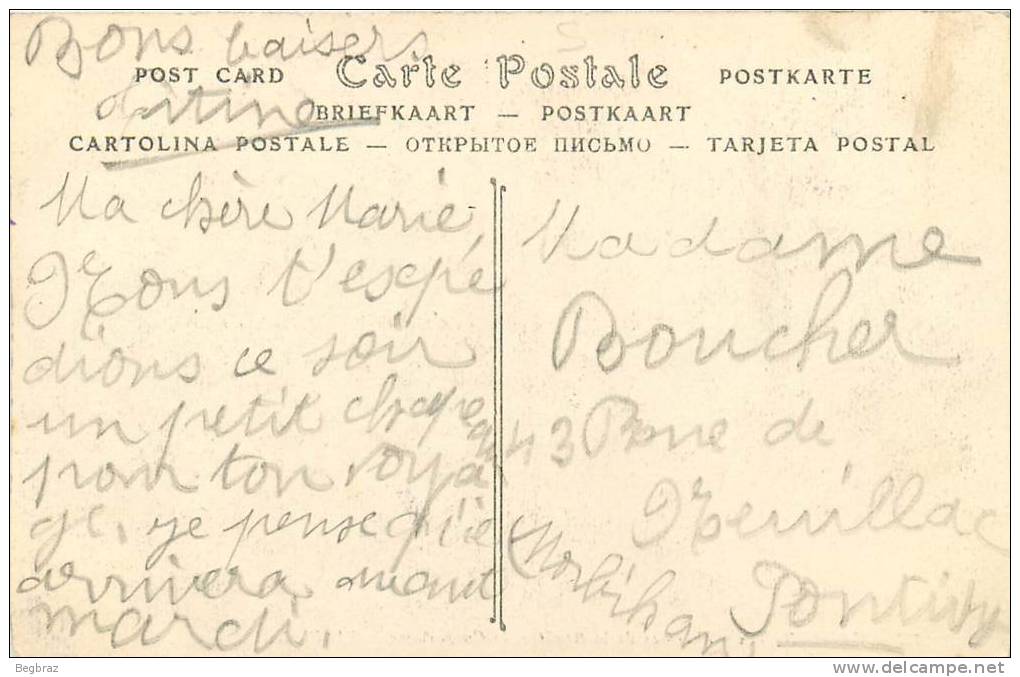 Bons baisers
POST CARD Carte Postale POSTKARTE
BRIEFKAART — POSTKAART
CARTOLINA POSTALE — ОТКРЫТОЕ ПИСЬМО — TARJETA POSTAL
Ma chère Marie,
Nous t'expé
dions ce soir
un petit chapeau
pour ton voya
ge. je pense qu'il
arrivera avant
mardi.
Madame
Boucher
43 Rue de
Neuillac
Pontivy
(Morbihan)
Begbraz
www.delcampe.net